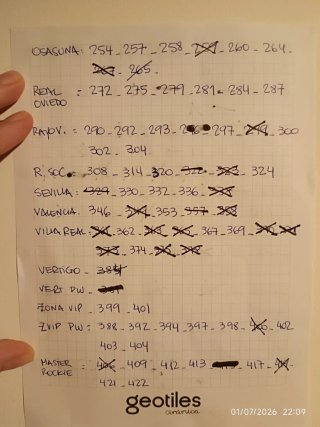 OSASUNA: 254 - 257 - 258 - 259 - 260 - 264 -
265 -
REAL OVIEDO : 272 - 275 - 279 - 281 - 284 - 287
RAYO V. : 290 - 292 - 293 - 297 - 299 - 300
302 - 304
R. SOC. : 308 - 314 - 320 - 322 - 323 - 324
SEVILLA : 329 - 330 - 332 - 336 -
VALENCIA: 346 - 353 - 357 - 358
VILLA REAL: 362 - 367 - 369 -
373 - 374 -
VERTIGO -
VERT PW -
ZONA VIP - 399 - 401
ZVIP PW : 388 - 392 - 394 - 397 - 398 - 402
403 - 404
MASTER ROCKIE : 409 - 412 - 413 - 417 -
421 - 422
geotiles
cerámica
01/07/2026 22:09